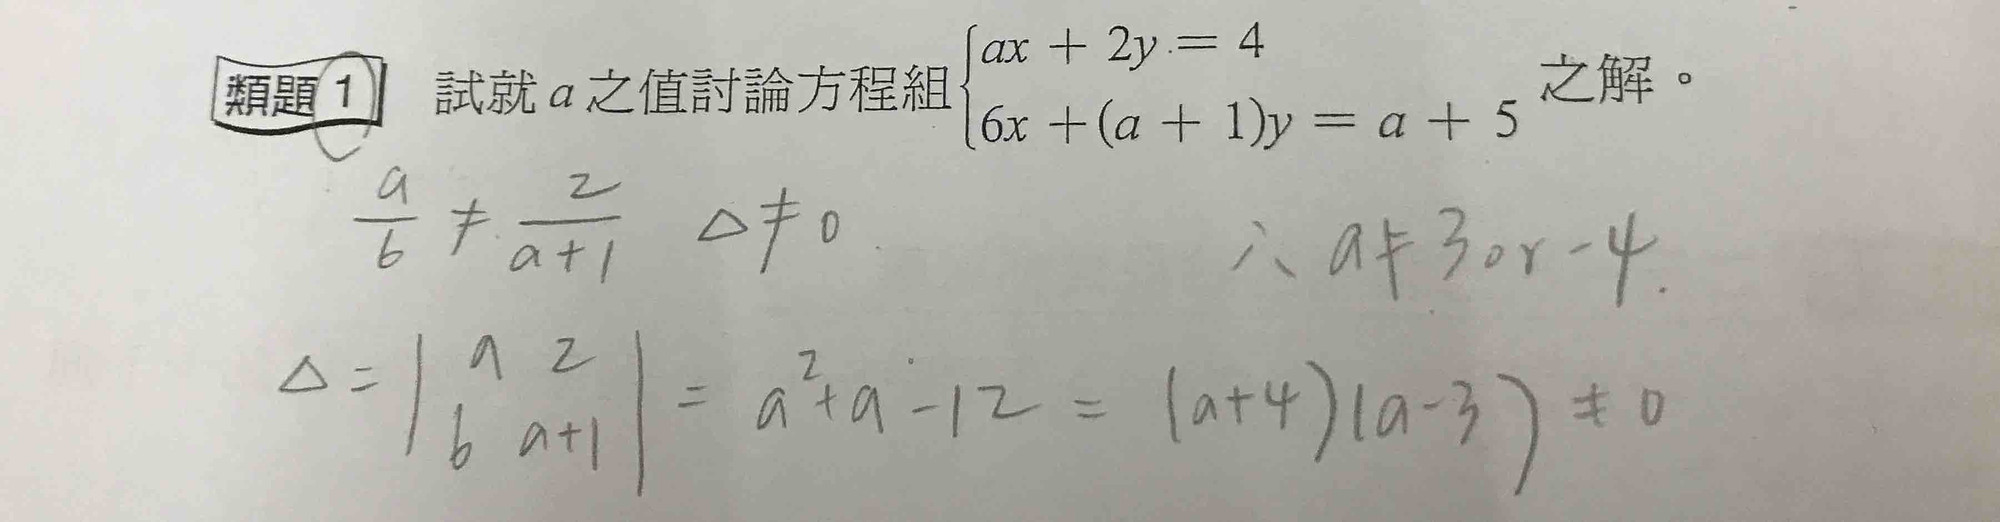 類題 1 試就 a 之值討論方程組 { ax + 2y = 4
6x + (a + 1)y = a + 5 之解。
a/6 ≠ 2/(a+1) △≠0 ∴ a≠3 or -4.
△ = | a 2
6 a+1 | = a²+a-12 = (a+4)(a-3) ≠ 0